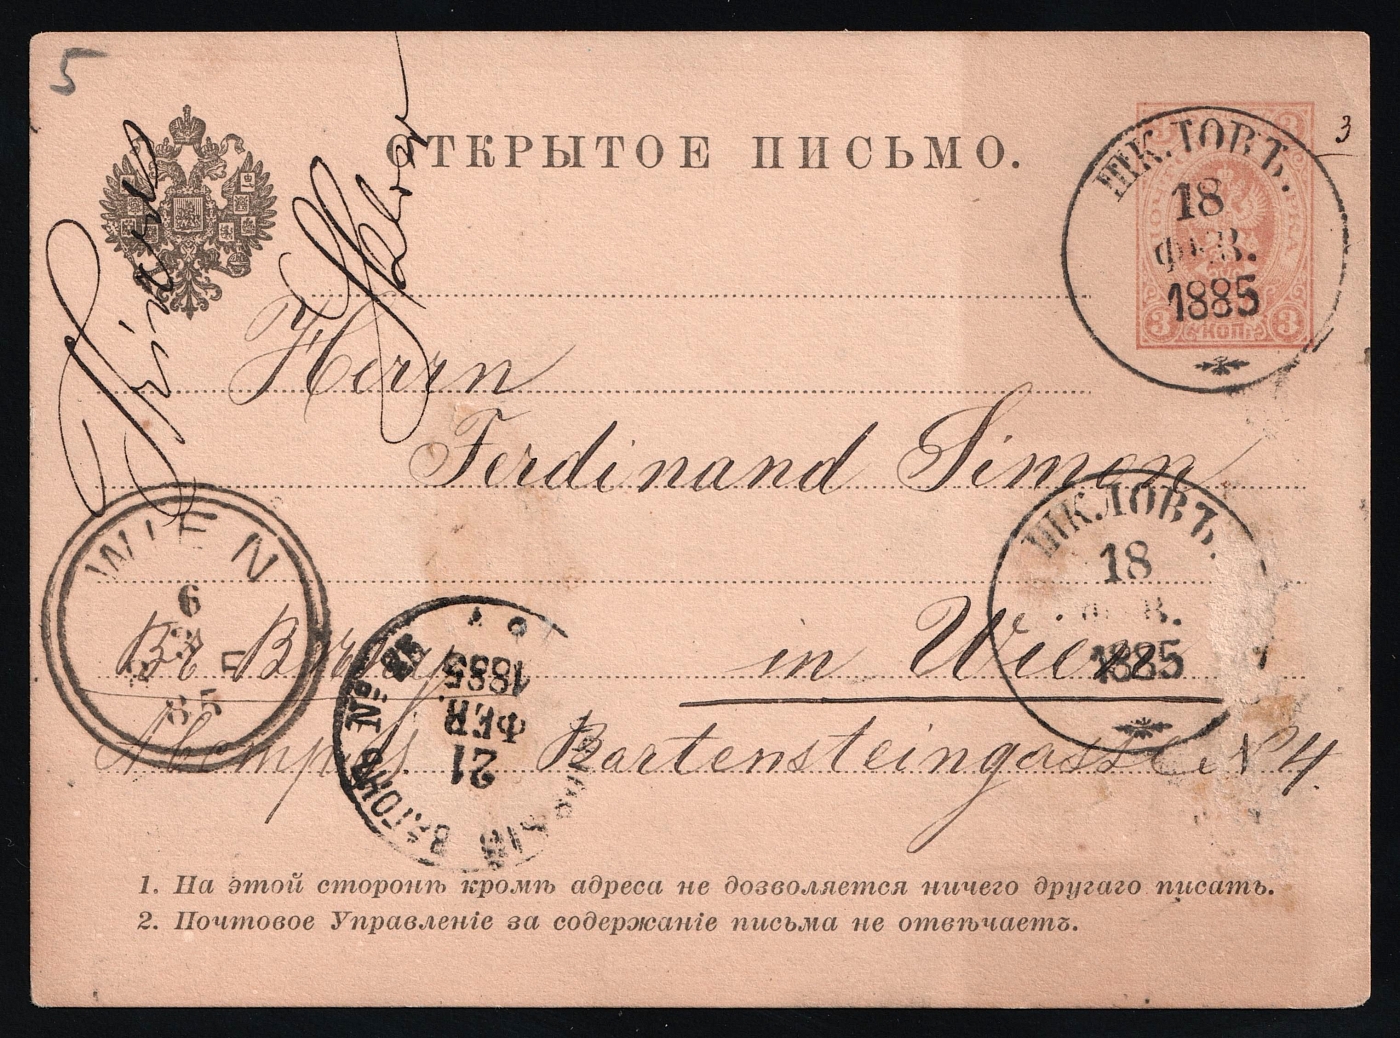 5
ОТКРЫТОЕ ПИСЬМО.
3
ШКЛОВЪ.
18
ФЕВ.
1885
3 КОП. 3
Herrn
Ferdinand Simon
ШКЛОВЪ.
18
ФЕВ.
1885
WIEN
6
3
85
in Wien
Bartensteingasse N 4.
ВАГОНЪ № 25
21
ФЕВ.
1885
1. На этой сторонѣ кромѣ адреса не дозволяется ничего другаго писать.
2. Почтовое Управленіе за содержаніе письма не отвѣчаетъ.